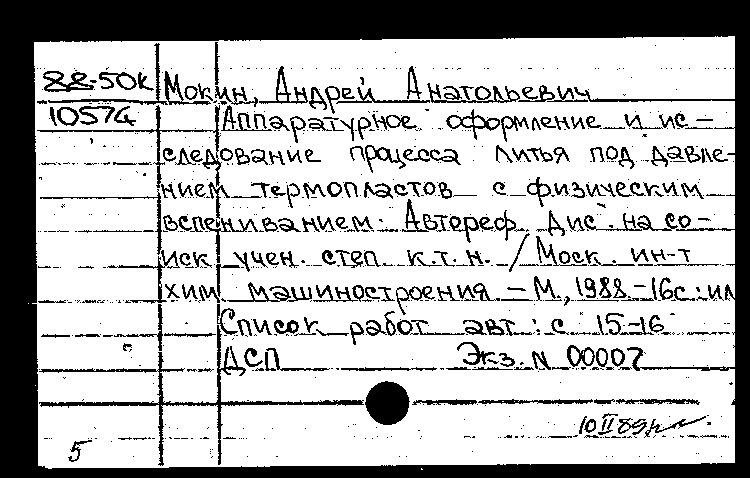 88-50к Мокин, Андрей Анатольевич
10574 Аппаратурное оформление и ис-
следование процесса литья под давле-
нием термопластов с физическим
вспениванием: Автореф. Дис. на со-
иск учен. степ. к.т.н. / Моск. ин-т
хим машиностроения - М., 1988 - 16с: ил
Список работ авт: с 15-16
ДСП Экз. N 00007
10 II 89
5